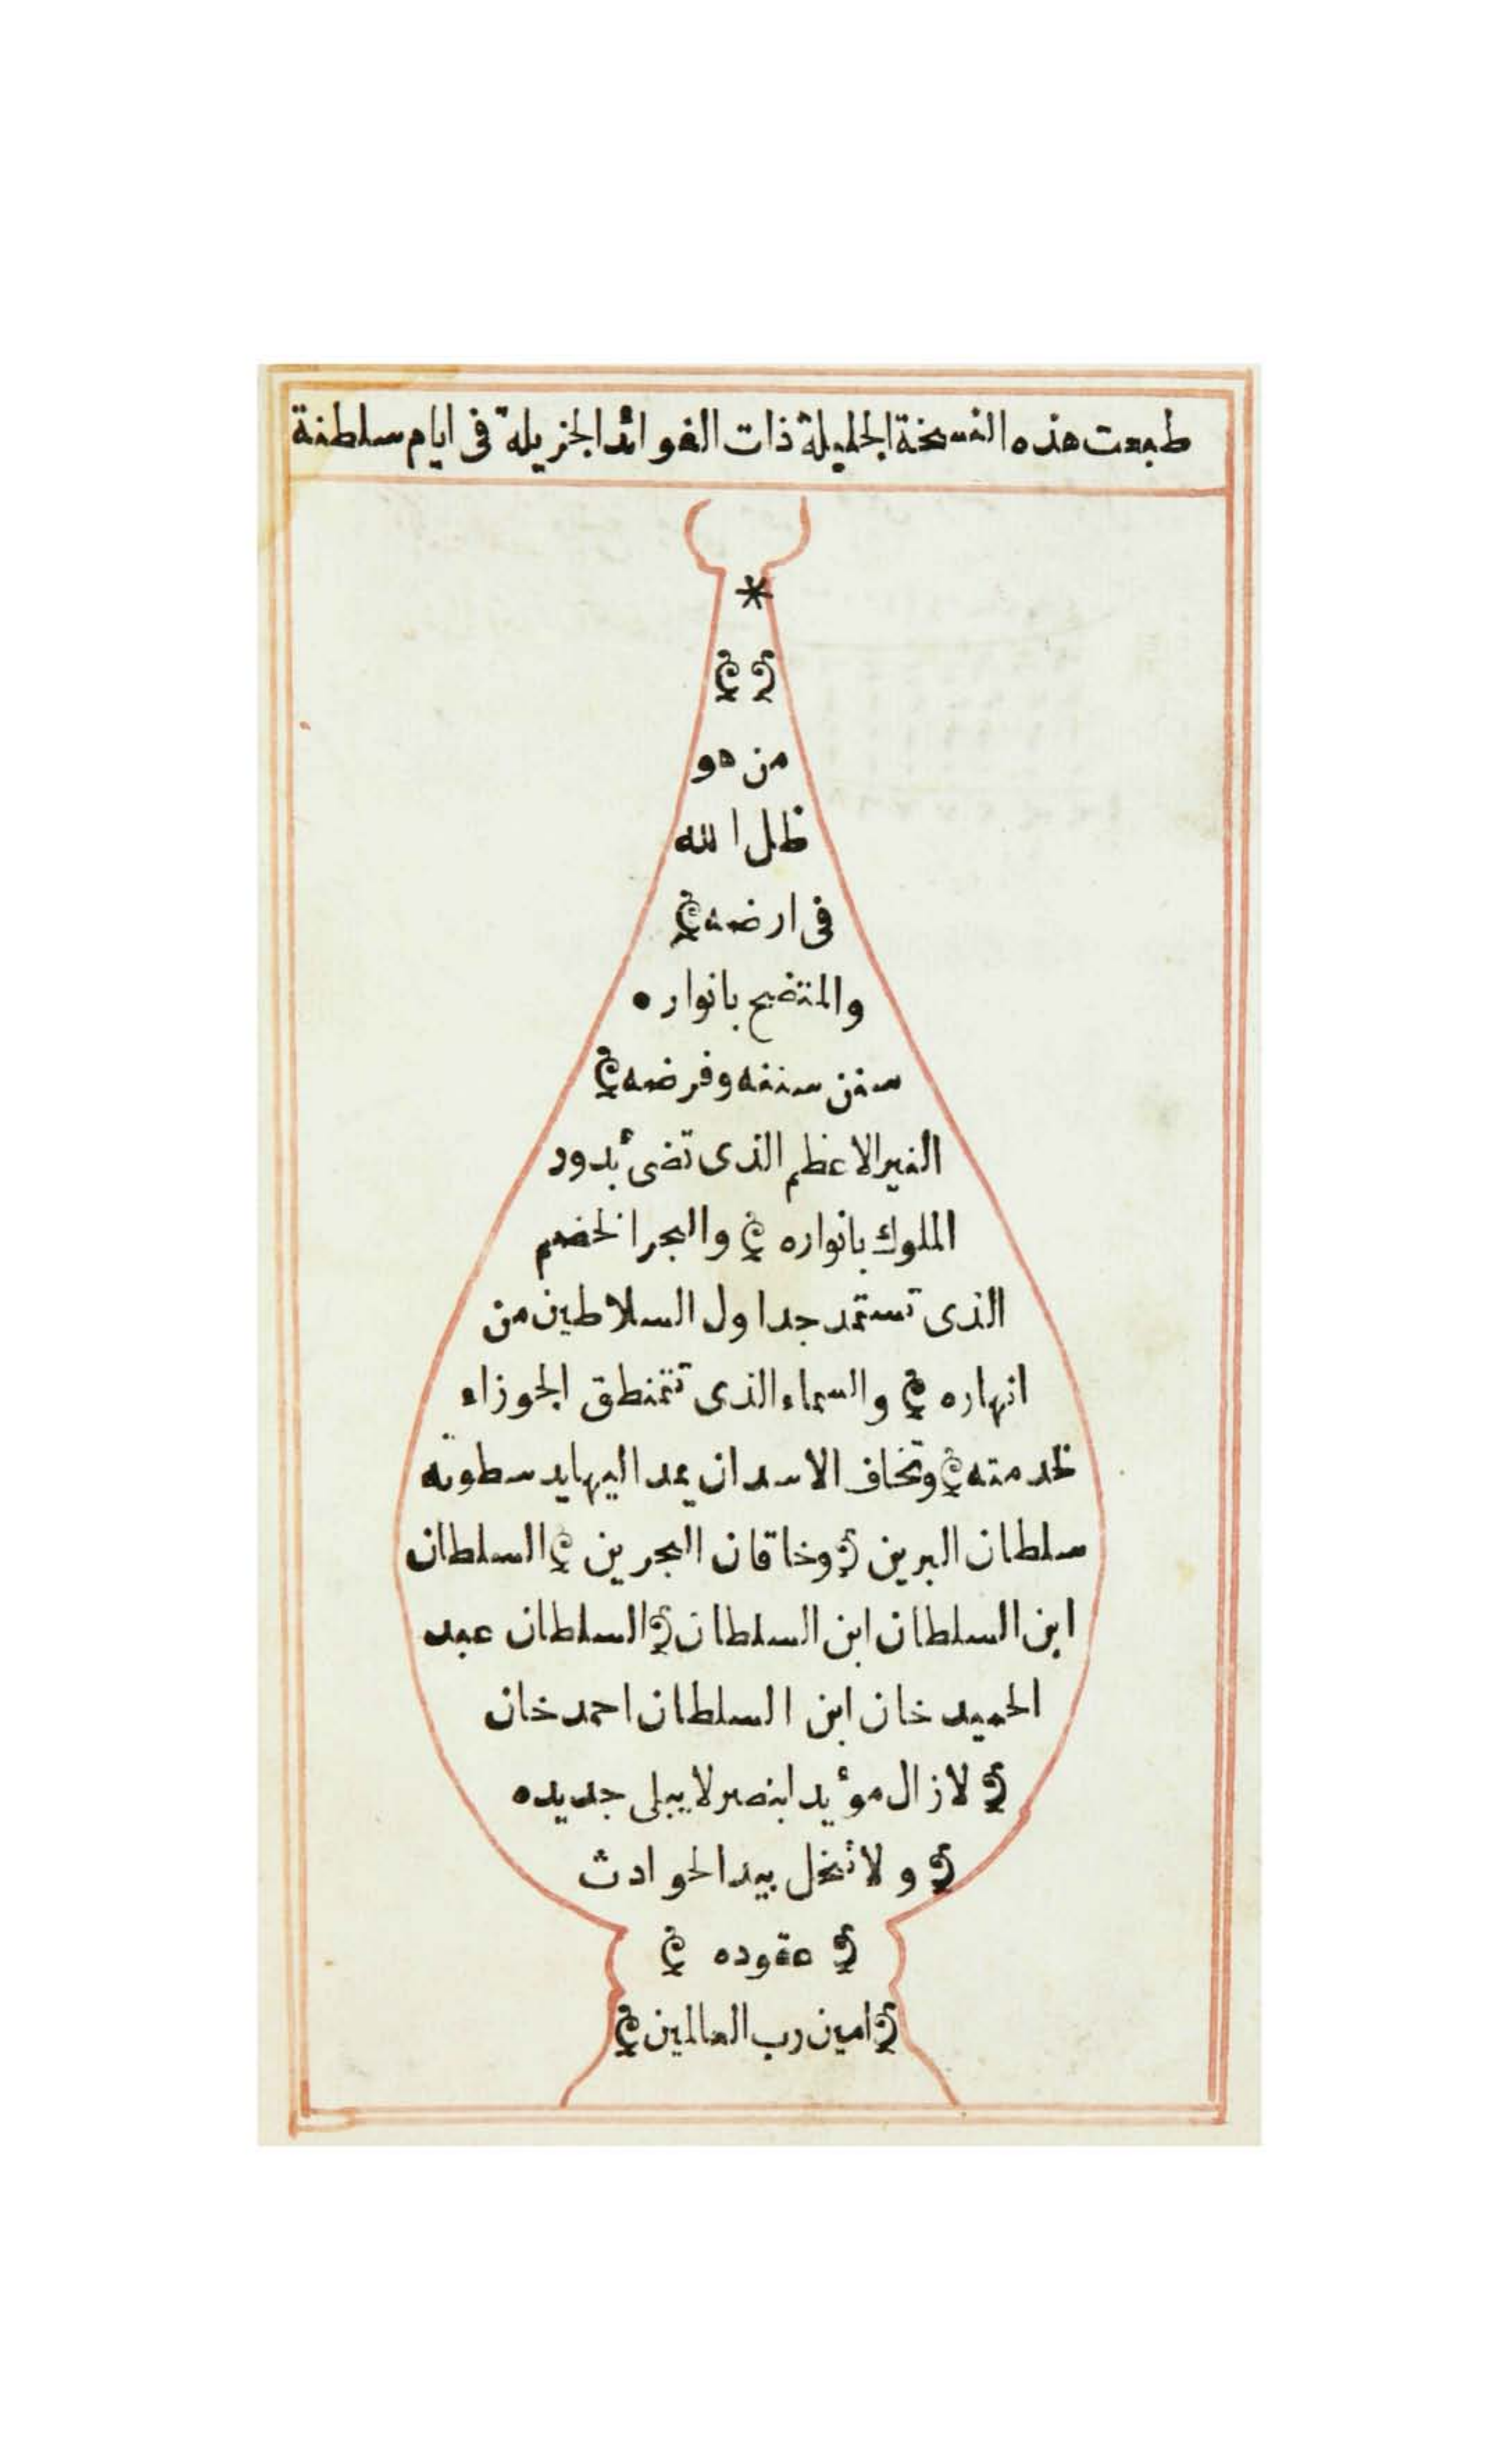 طبعت هذه النسخة الجليلة ذات الفوائد الجزيلة فى ايام سلطنة
من هو
ظل الله
فى ارضه
والمتضح بانواره
سنن سننه وفرضه
النير الاعظم الذى تضئ بدور
الملوك بانواره والبحر الخضم
الذى تستمد جداول السلاطين من
انهاره والسماء الذى تتمنطق الجوزاء
لخدمته وتخاف الاسد ان يمد اليها يد سطوته
سلطان البرين وخاقان البحرين السلطان
ابن السلطان ابن السلطان السلطان عبد
الحميد خان ابن السلطان احمد خان
لازال مؤيدا بنصر لا يبلى جديده
ولا تنحل بيد الحوادث
عقوده
امين رب العالمين